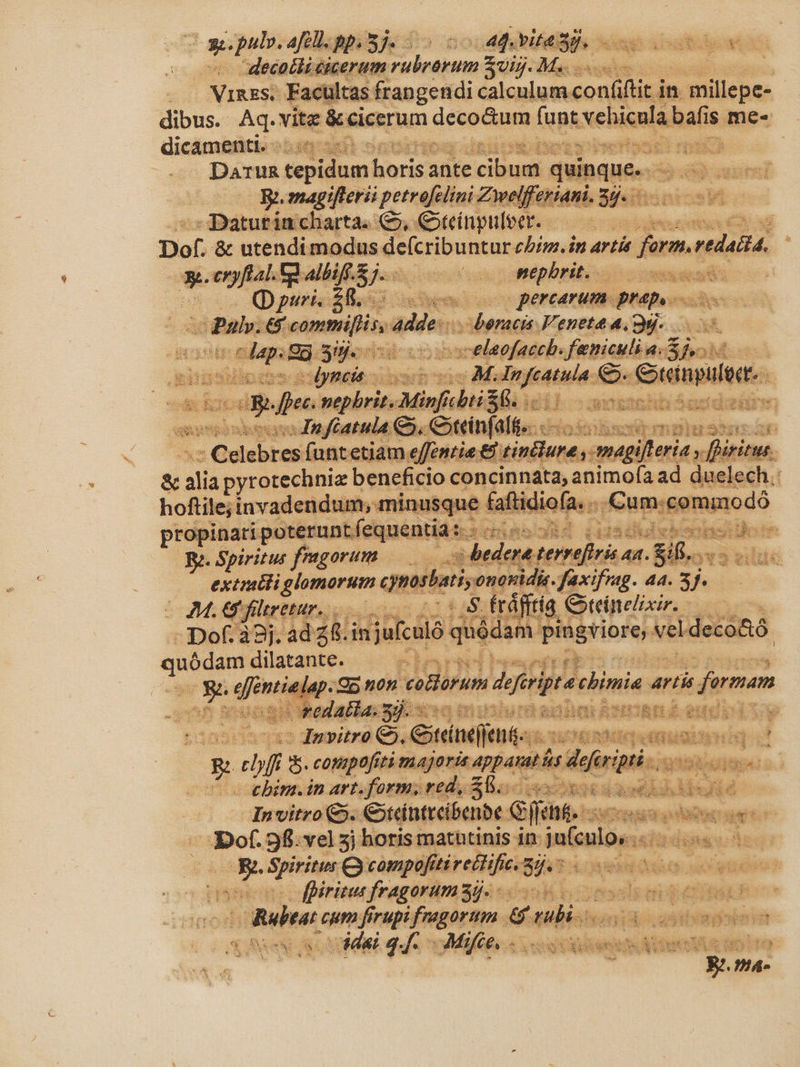 ℞. pulv. aſell. pp. ʒj. aq. vitæ ʒij.
decocti cicerum rubrorum ℥viij. M.
VIRES. Facultas frangendi calculum conſiſtit in millepe-
dibus. Aq. vitæ & cicerum decoctum ſunt vehicula baſis me-
dicamenti.
DATUR tepidum horis ante cibum quinque.
℞. magiſterii petroſelini Zwelfferiani. ʒij.
Datur in charta. S. Steinpulver.
Doſ. & utendi modus deſcribuntur chim. in artis form. redacta.
℞. cryſtal. albiſſ. ℥j. nephrit.
puri. ℥ß. percarum præp.
Pulv. & commiſtis, adde boracis Venetæ a. ℈ij.
lap. ʒiij. elæoſacch. fœniculi a. ʒj.
lyncis M. In ſcatula S. Steinpulver.
℞. ſpec. nephrit. Minſichti ℥ß.
In ſcatula S. Steinſaltz.
Celebres ſunt etiam eſſentiæ & tincturæ, magiſteria, ſpiritus
& alia pyrotechniæ beneficio concinnata, animoſa ad duelech,
hoſtile, invadendum, minusque faſtidioſa. Cum commodô
propinari poterunt ſequentia:
℞. Spiritus fragorum hederæ terreſtris aa. ℥iß.
extracti glomorum cynosbati, ononidis. ſaxifrag. aa. ʒj.
M. & filtretur. S. kräfftig Steinelixir.
Doſ. à ℈j. ad ʒß. in juſculô quôdam pingviore, vel decoctô
quôdam dilatante.
℞. eſſentiæ lap. non coctorum deſcriptæ chimiæ artis formam
redacta. ʒij.
In vitro S. Steineſſentz.
℞ clyſſi compoſiti majoris apparatûs deſcripti
chim. in art. form. red. ℥ß.
In vitro S. Steintreibende Eſſentz.
Doſ. ℈ß. vel ʒj horis matutinis in juſculo.
℞. Spiritus compoſiti rectific. ʒij.
ſpiritus fragorum ʒij.
Rubeat cum ſirupi fragorum & rubi
idæi q. ſ. Miſce.
℞. ma-